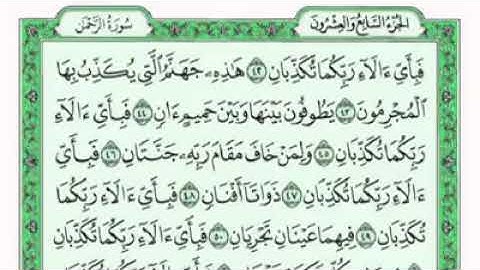 الجزء السابع والعشرون
سورة الرحمن
فَبِأَيِّ ءَالَآءِ رَبِّكُمَا تُكَذِّبَانِ ٤٢ هَٰذِهِۦ جَهَنَّمُ ٱلَّتِى يُكَذِّبُ بِهَا
ٱلْمُجْرِمُونَ ٤٣ يَطُوفُونَ بَيْنَهَا وَبَيْنَ حَمِيمٍ ءَانٍ ٤٤ فَبِأَيِّ ءَالَآءِ
رَبِّكُمَا تُكَذِّبَانِ ٤٥ وَلِمَنْ خَافَ مَقَامَ رَبِّهِۦ جَنَّتَانِ ٤٦ فَبِأَيِّ
ءَالَآءِ رَبِّكُمَا تُكَذِّبَانِ ٤٧ ذَوَاتَآ أَفْنَانٍ ٤٨ فَبِأَيِّ ءَالَآءِ رَبِّكُمَا
تُكَذِّبَانِ ٤٩ فِيهِمَا عَيْنَانِ تَجْرِيَانِ ٥٠ فَبِأَيِّ ءَالَآءِ رَبِّكُمَا تُكَذِّبَانِ